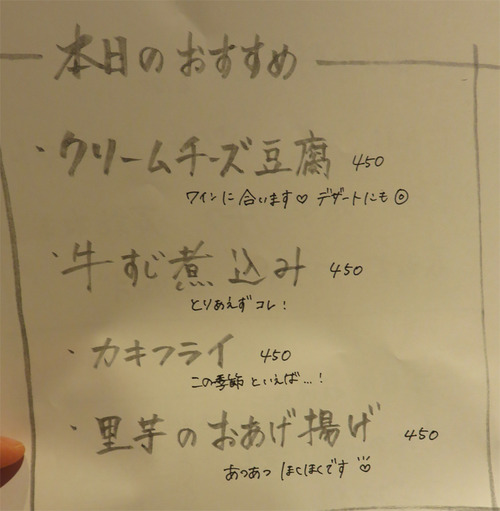 本日のおすすめ
・クリームチーズ豆腐 450
ワインに合います♡ デザートにも◎
・牛すじ煮込み 450
とりあえずコレ！
・カキフライ 450
この季節といえば…！
・里芋のおあげ揚げ 450
あつあつ ほくほくです♡